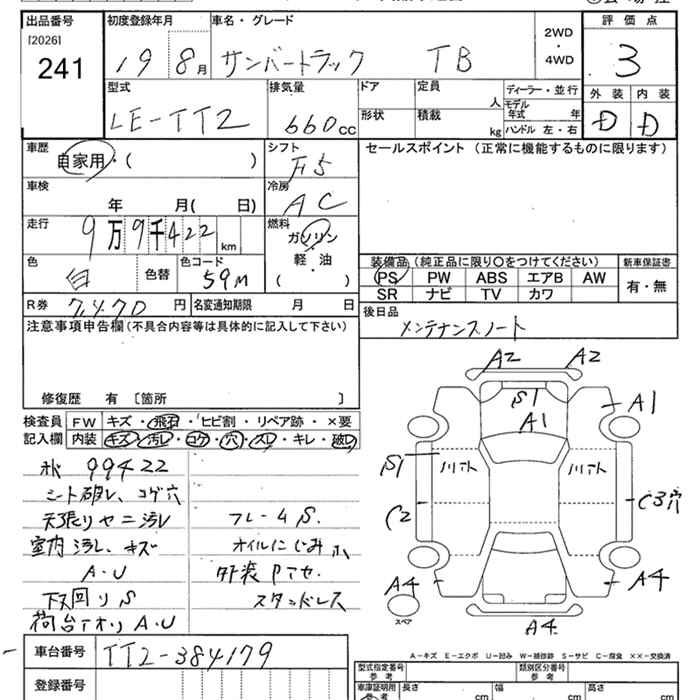 出品番号 初度登録年月 車名・グレード 2WD・4WD 評価点
[2026]
241
19 8月 サンバートラック TB 3
型式 LE-TT2 排気量 660cc ドア 定員 人 ディーラー・並行 外装 内装
形状 積載 kg モデル年式 年 ハンドル 左・右 D D
車歴 自家用・( ) シフト F5 セールスポイント (正常に機能するものに限ります)
車検 年 月( 日) 冷房 AC
走行 9万9千422km 燃料 ガソリン
軽・油
( )
色 白 色替 色コード 59M
装備品 (純正品に限り○をつけてください) 新車保証書
PS PW ABS エアB AW 有・無
SR ナビ TV カワ
R券 7,470円 名変通知期限 月 日 後日品
メンテナンスノート
注意事項申告欄 (不具合内容等は具体的に記入して下さい)
修復歴 有 〔箇所 〕
検査員記入欄 FW キズ・飛石・ヒビ割・リペア跡・×要
内装 キズ・汚レ・コゲ・穴・スレ・キレ・破レ
99422
シート破レ、コゲ穴
天張リヤニ汚レ
室内汚レ、キズ
A・U
下回リS
荷台アオリA・U
フレームS.
オイルにじみ
外装
A2 A2
S1 A1
A1
S1
C2 C3穴
A4 A4
スペア
A4
A-キズ E-エクボ U-凹み W-補修跡 S-サビ C-腐食 ××-交換済
車台番号 TT2-384179
登録番号
型式指定番号 参考 類別区分番号 参考
車庫証明用 参考 長さ cm 幅 cm 高さ cm